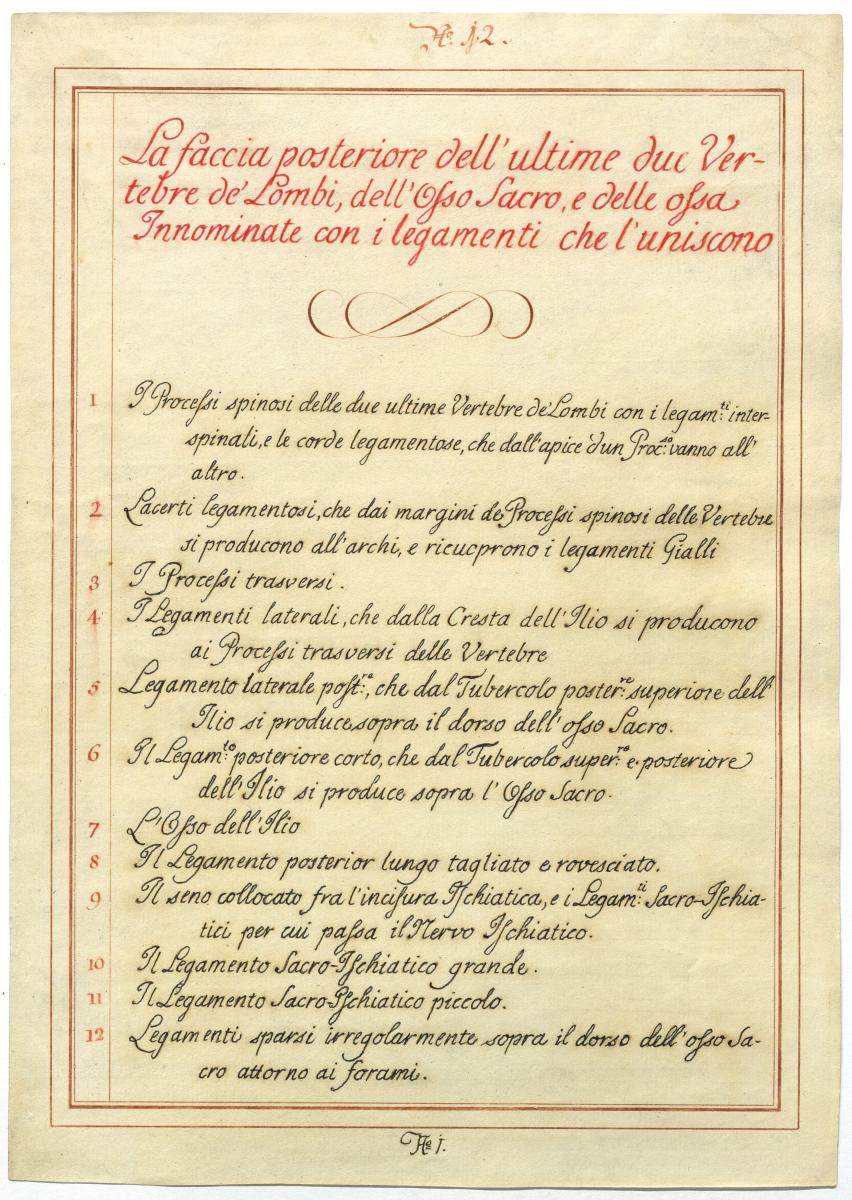 No. 12.
La faccia posteriore dell'ultime due Ver-
tebre de' Lombi, dell'Osso Sacro, e delle ossa
Innominate con i legamenti che l'uniscono
1 I Processi spinosi delle due ultime Vertebre de' Lombi con i legam.ti inter-
spinali, e le corde legamentose, che dall'apice d'un Proc.so vanno all'
altro.
2 Lacerti legamentosi, che dai margini de Processi spinosi delle Vertebre
si producono all'archi, e ricuoprono i legamenti Gialli
3 I Processi trasversi.
4 I Legamenti laterali, che dalla Cresta dell'Ilio si producono
ai Processi trasversi delle Vertebre
5 Legamento laterale post.re, che dal Tubercolo poster.re superiore dell'
Ilio si produce sopra il dorso dell'osso Sacro.
6 Il Legam.to posteriore corto, che dal Tubercolo super.re e posteriore
dell'Ilio si produce sopra l'Osso Sacro.
7 L'Osso dell'Ilio
8 Il Legamento posterior lungo tagliato e rovesciato.
9 Il seno collocato fra l'incisura Ischiatica, e i Legam.ti Sacro-Ischia-
tici per cui passa il Nervo Ischiatico.
10 Il Legamento Sacro-Ischiatico grande.
11 Il Legamento Sacro-Ischiatico piccolo.
12 Legamenti sparsi irregolarmente sopra il dorso dell'osso Sa-
cro attorno ai forami.
No 1.